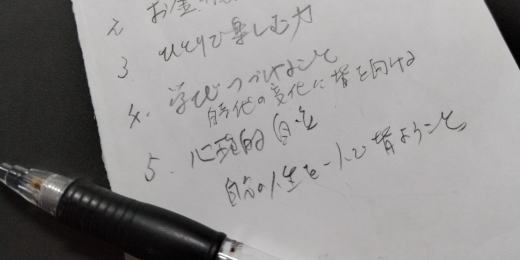 2 お金
3 ひとりで楽しむ力
4. 学びつづけること
時代の変化に背を向ける
5. 心理的自立
自分の人生を一人で背ようこと